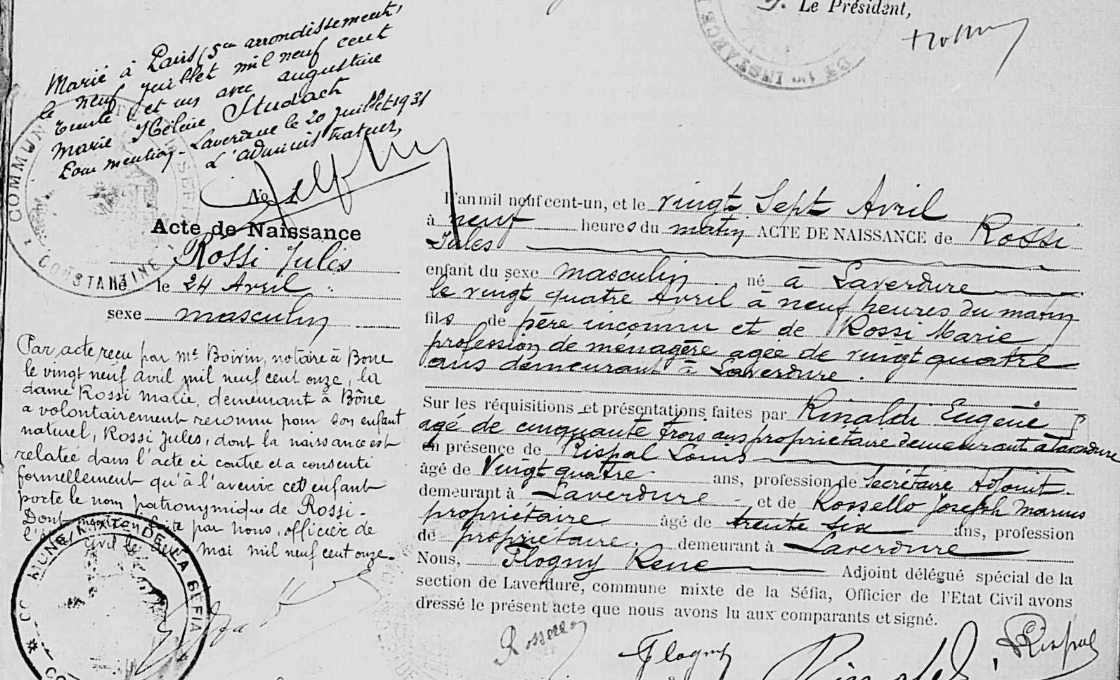 Le Président,
Marié à Paris (5me arrondissement,
le neuf juillet mil neuf cent
trente et un avec augustine
Marie Hélène Studach
Pour mention - Laverdure le 20 juillet 1931
L'administrateur,
No 1
Acte de Naissance
Rossi Jules
né le 24 Avril
sexe masculin
Par acte reçu par Me Boivin, notaire à Bône
le vingt neuf avril mil neuf cent onze, la
dame Rossi Marie, demeurant à Bône
a volontairement reconnu pour son enfant
naturel, Rossi Jules, dont la naissance est
relatée dans l'acte ci contre et a consenti
formellement qu'à l'avenir cet enfant
porte le nom patronymique de Rossi -
Dont mention faite par nous, officier de
l'état civil le mai mil neuf cent onze
L'an mil neuf cent-un, et le vingt Sept Avril
à neuf heures du matin ACTE DE NAISSANCE de Rossi
Jules
enfant du sexe masculin né à Laverdure
le vingt quatre Avril à neuf heures du matin
fils de père inconnu et de Rossi Marie
profession de ménagère agée de vingt quatre
ans demeurant à Laverdure.
Sur les réquisitions et présentations faites par Rinaldi Eugène
agé de cinquante trois ans propriétaire demeurant à Laverdure
en présence de Rispal Louis
âgé de Vingt quatre ans, profession de Secrétaire Adjoint
demeurant à Laverdure et de Rossello Joseph Marius
propriétaire âgé de trente six ans, profession
de propriétaire. demeurant à Laverdure
Nous, Flogny René Adjoint délégué spécial de la
section de Laverdure, commune mixte de la Séfia, Officier de l'Etat Civil avons
dressé le présent acte que nous avons lu aux comparants et signé.
Rossello
Flogny
Rinaldi
Rispal
COMMUNE MIXTE DE LA SÉFIA
CONSTANTINE